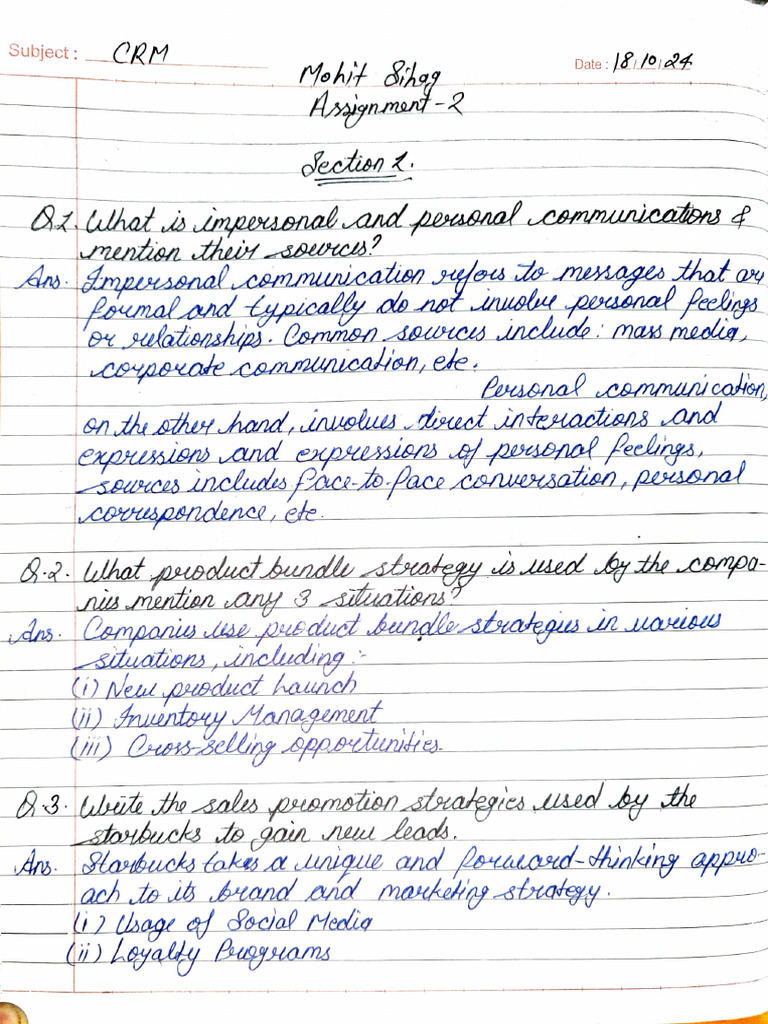 Subject : CRM
Date : 18/10/24
Mohit Sihag
Assignment-2
Section 1.
Q1. What is impersonal and personal communications &
mention their sources?
Ans. Impersonal communication refers to messages that are
formal and typically do not involve personal feelings
or relationships. Common sources include: mass media,
corporate communication, etc.
Personal communication,
on the other hand, involves direct interactions and
expressions and expressions of personal feelings,
sources includes face-to-face conversation, personal
correspondence, etc.
Q.2. What product bundle strategy is used by the compa-
nies mention any 3 situations?
Ans. Companies use product bundle strategies in various
situations, including :-
(i) New product launch
(ii) Inventory Management
(iii) Cross-selling opportunities.
Q.3. Write the sales promotion strategies used by the
starbucks to gain new leads.
Ans. Starbucks takes a unique and forward-thinking appro-
ach to its brand and marketing strategy.
(i) Usage of Social Media
(ii) Loyalty Programs